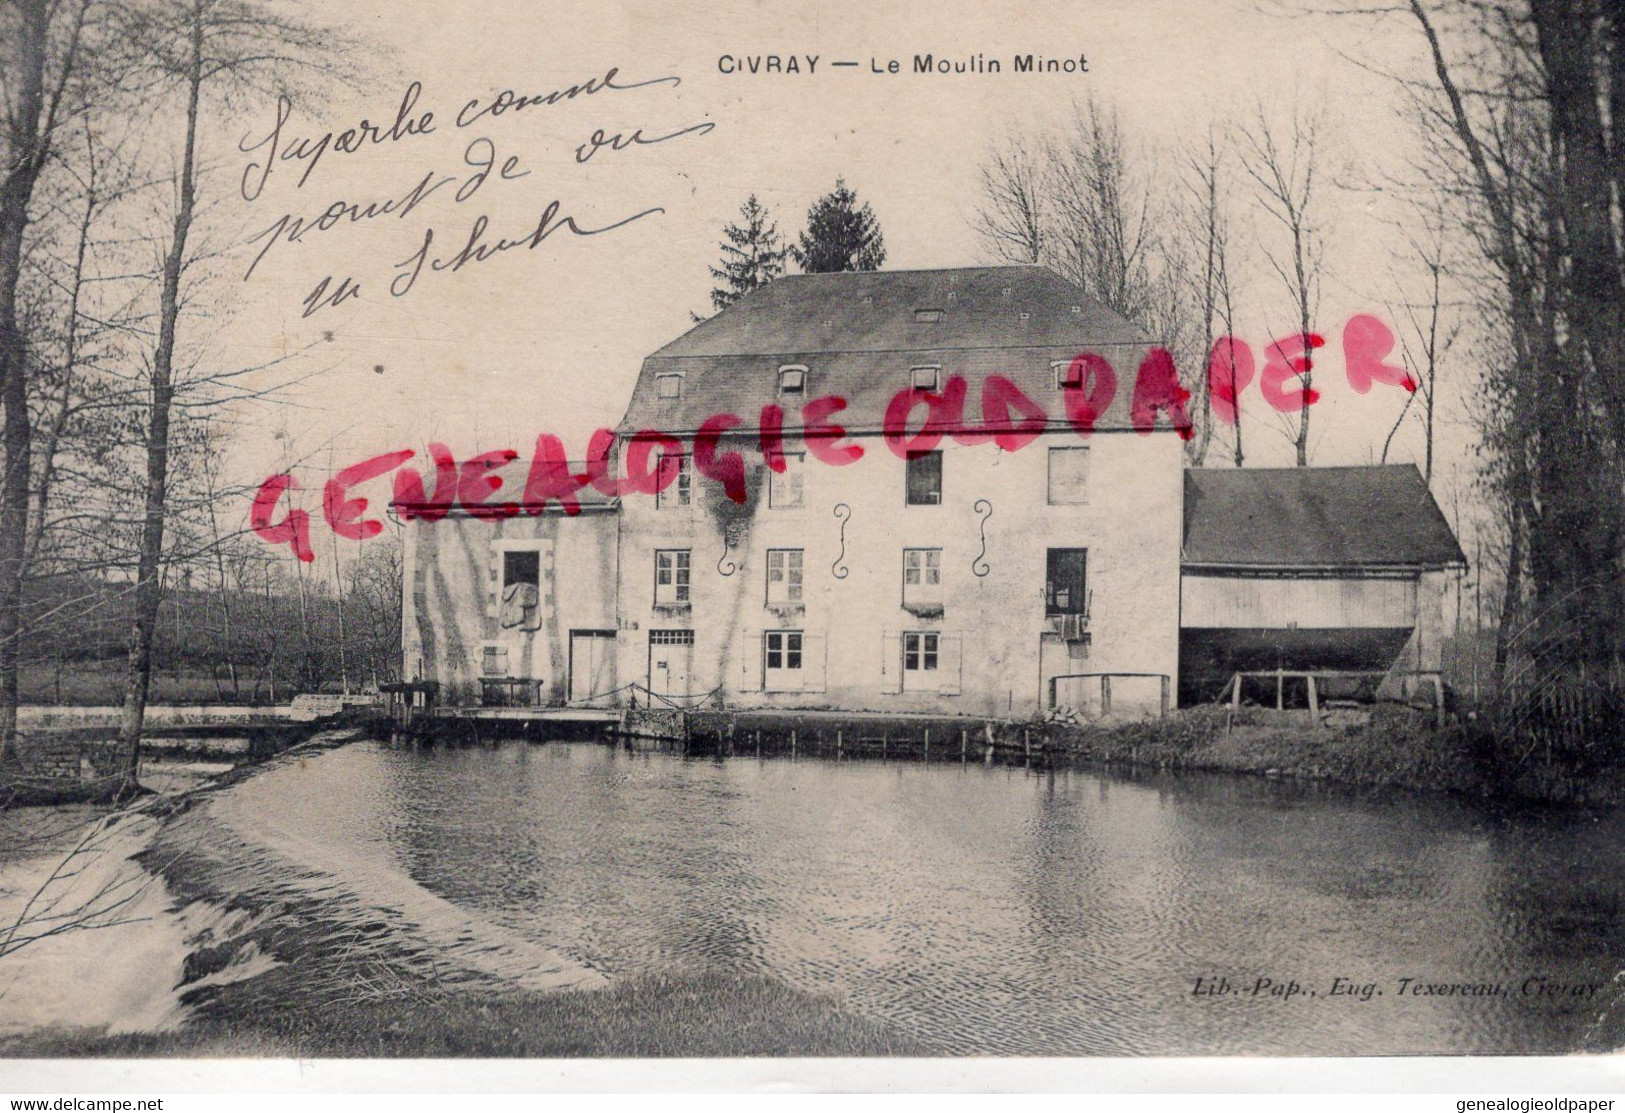 CIVRAY — Le Moulin Minot
Superbe comme
point de vu
GENEALOGIE OLD PAPER
Lib.-Pap., Eug. Texereau, Civray
delcampe.net
genealogieoldpaper